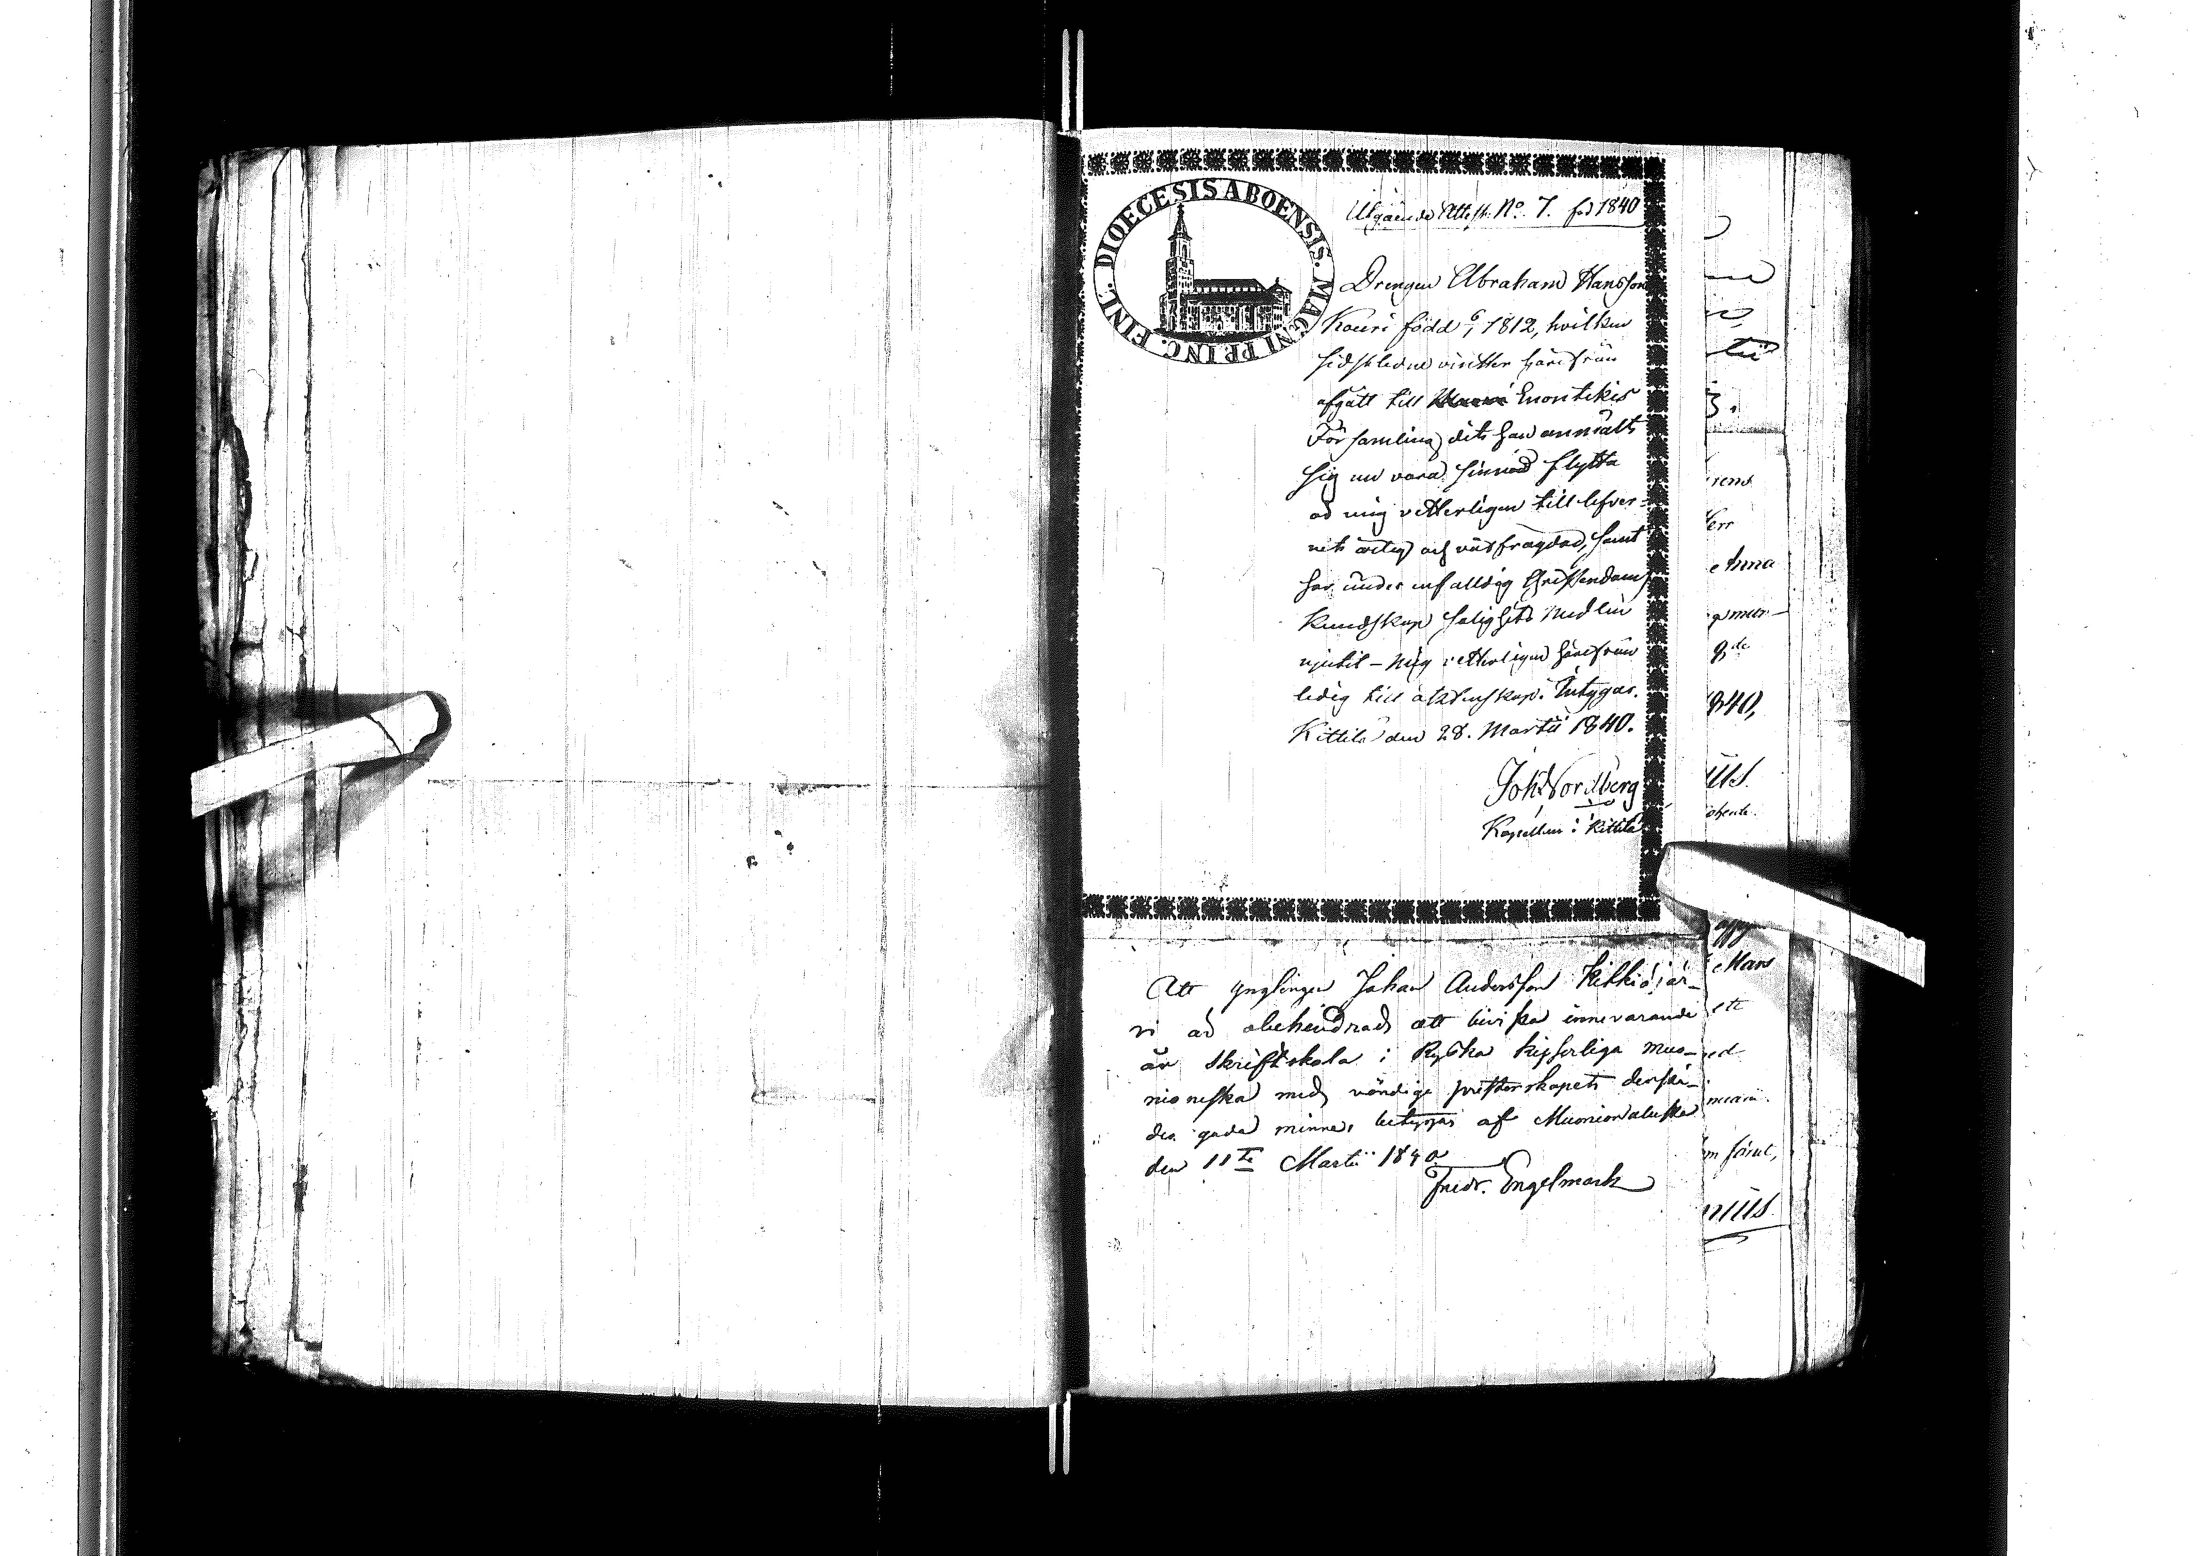 DIOECESIS ABOENSIS. MAGNI PRINC. FINL.
Utgående Attest. No. 7. för 1840
Drengen Abraham Hansson
Kouri född 1812, hvilken
sidstledne vintter härifrån
afgått till Enontekis
Församling dit han anmält
sig nu vara sinnad flytta
är mig vetterligen till lefver-
net ärlig och välfrägdad, samt
har under enfalldig Christendoms
Kundskap salighets medlen
njutit – mig vetterligen härifrån
ledig till äktenskap. Intygar.
Kittilä den 28. Martii 1840.
Joh Nordberg
Kapellan i Kittilä
Att ynglingen Johan Andersson Kihkiöjär-
vi är obehindrad att bivista innevarande
år Skriftskola i Ryska kejserliga Muo-
nioniska med vördige presterskapets
goda minne, betygas af Muonionaluska
den 11te Martii 1840
Fredr. Engelmark
Anna
8de
840,
Mars